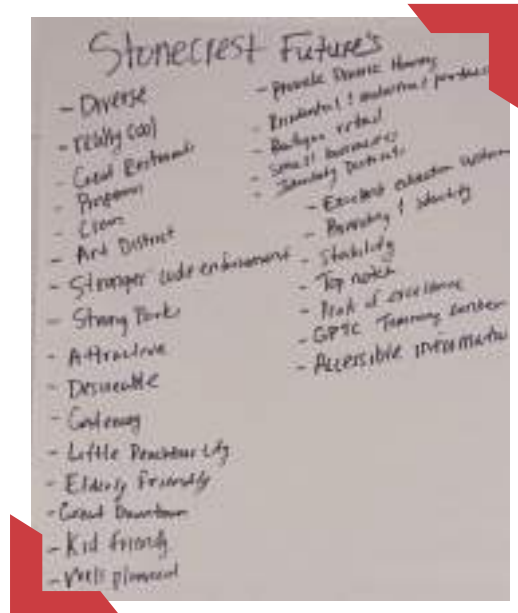 Stonecrest Future's
- Diverse
- really cool
- Good Restaurants
- Progressive
- Clean
- Art District
- Stronger code enforcement
- Strong Parks
- Attractive
- Desireable
- Gateway
- Little Peachtree City
- Elderly Friendly
- Great Downtown
- Kid friendly
- Well planned
- Provide Diverse Housing
- Residential &
- Boutique retail
- small businesses
- Districts
- Excellent education system
- Branding & identity
- Stability
- Top notch
- of excellence
- GPTC Training center
- Accessible informatio